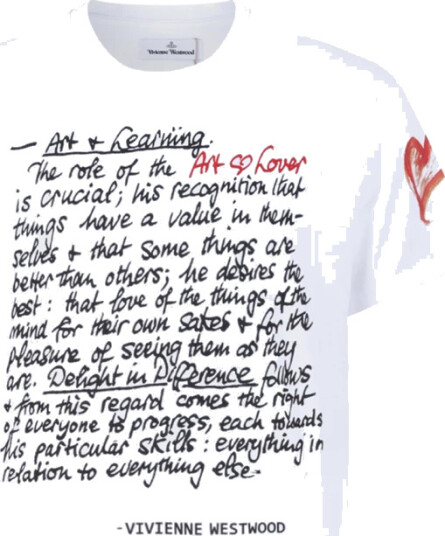 Vivienne Westwood
— Art + Learning.
The role of the Art ♡ Lover
is crucial; his recognition that
things have a value in them-
selves + that some things are
better than others; he desires the
best: that love of the things of the
mind for their own sakes + for the
pleasure of seeing them as they
are. Delight in Difference follows
+ from this regard comes the right
of everyone to progress, each towards
his particular skills: everything in
relation to everything else-
-VIVIENNE WESTWOOD